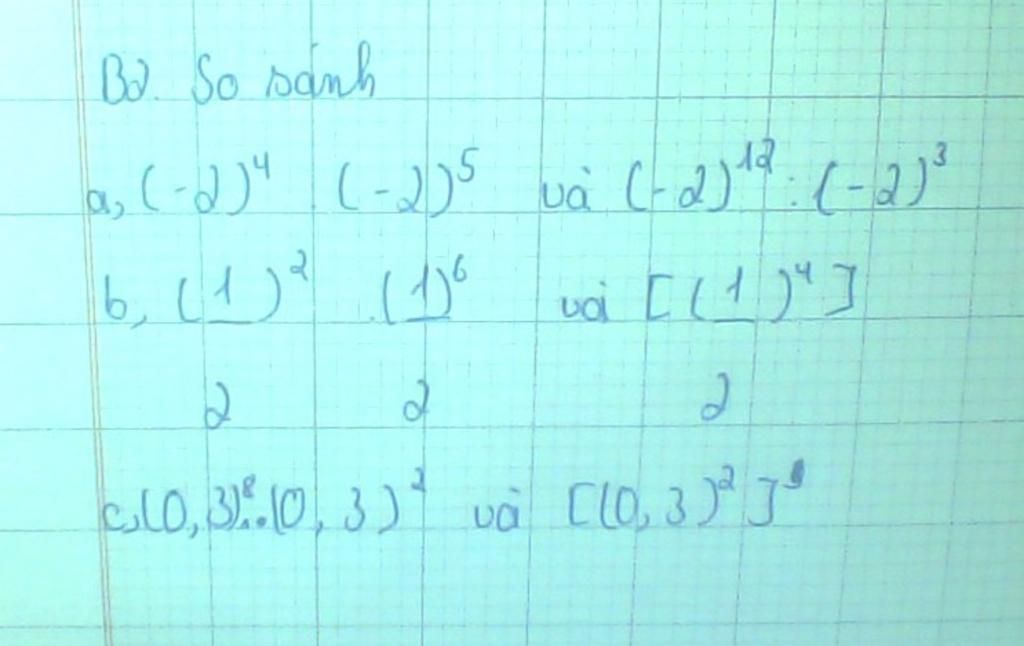 B2. So sánh
a, (-2)⁴ . (-2)⁵ và (-2)¹² : (-2)³
b, (1)² . (1)⁶ và [(1)⁴]
2 2 2
c, (0,3)⁸ : (0,3)² và [(0,3)²]